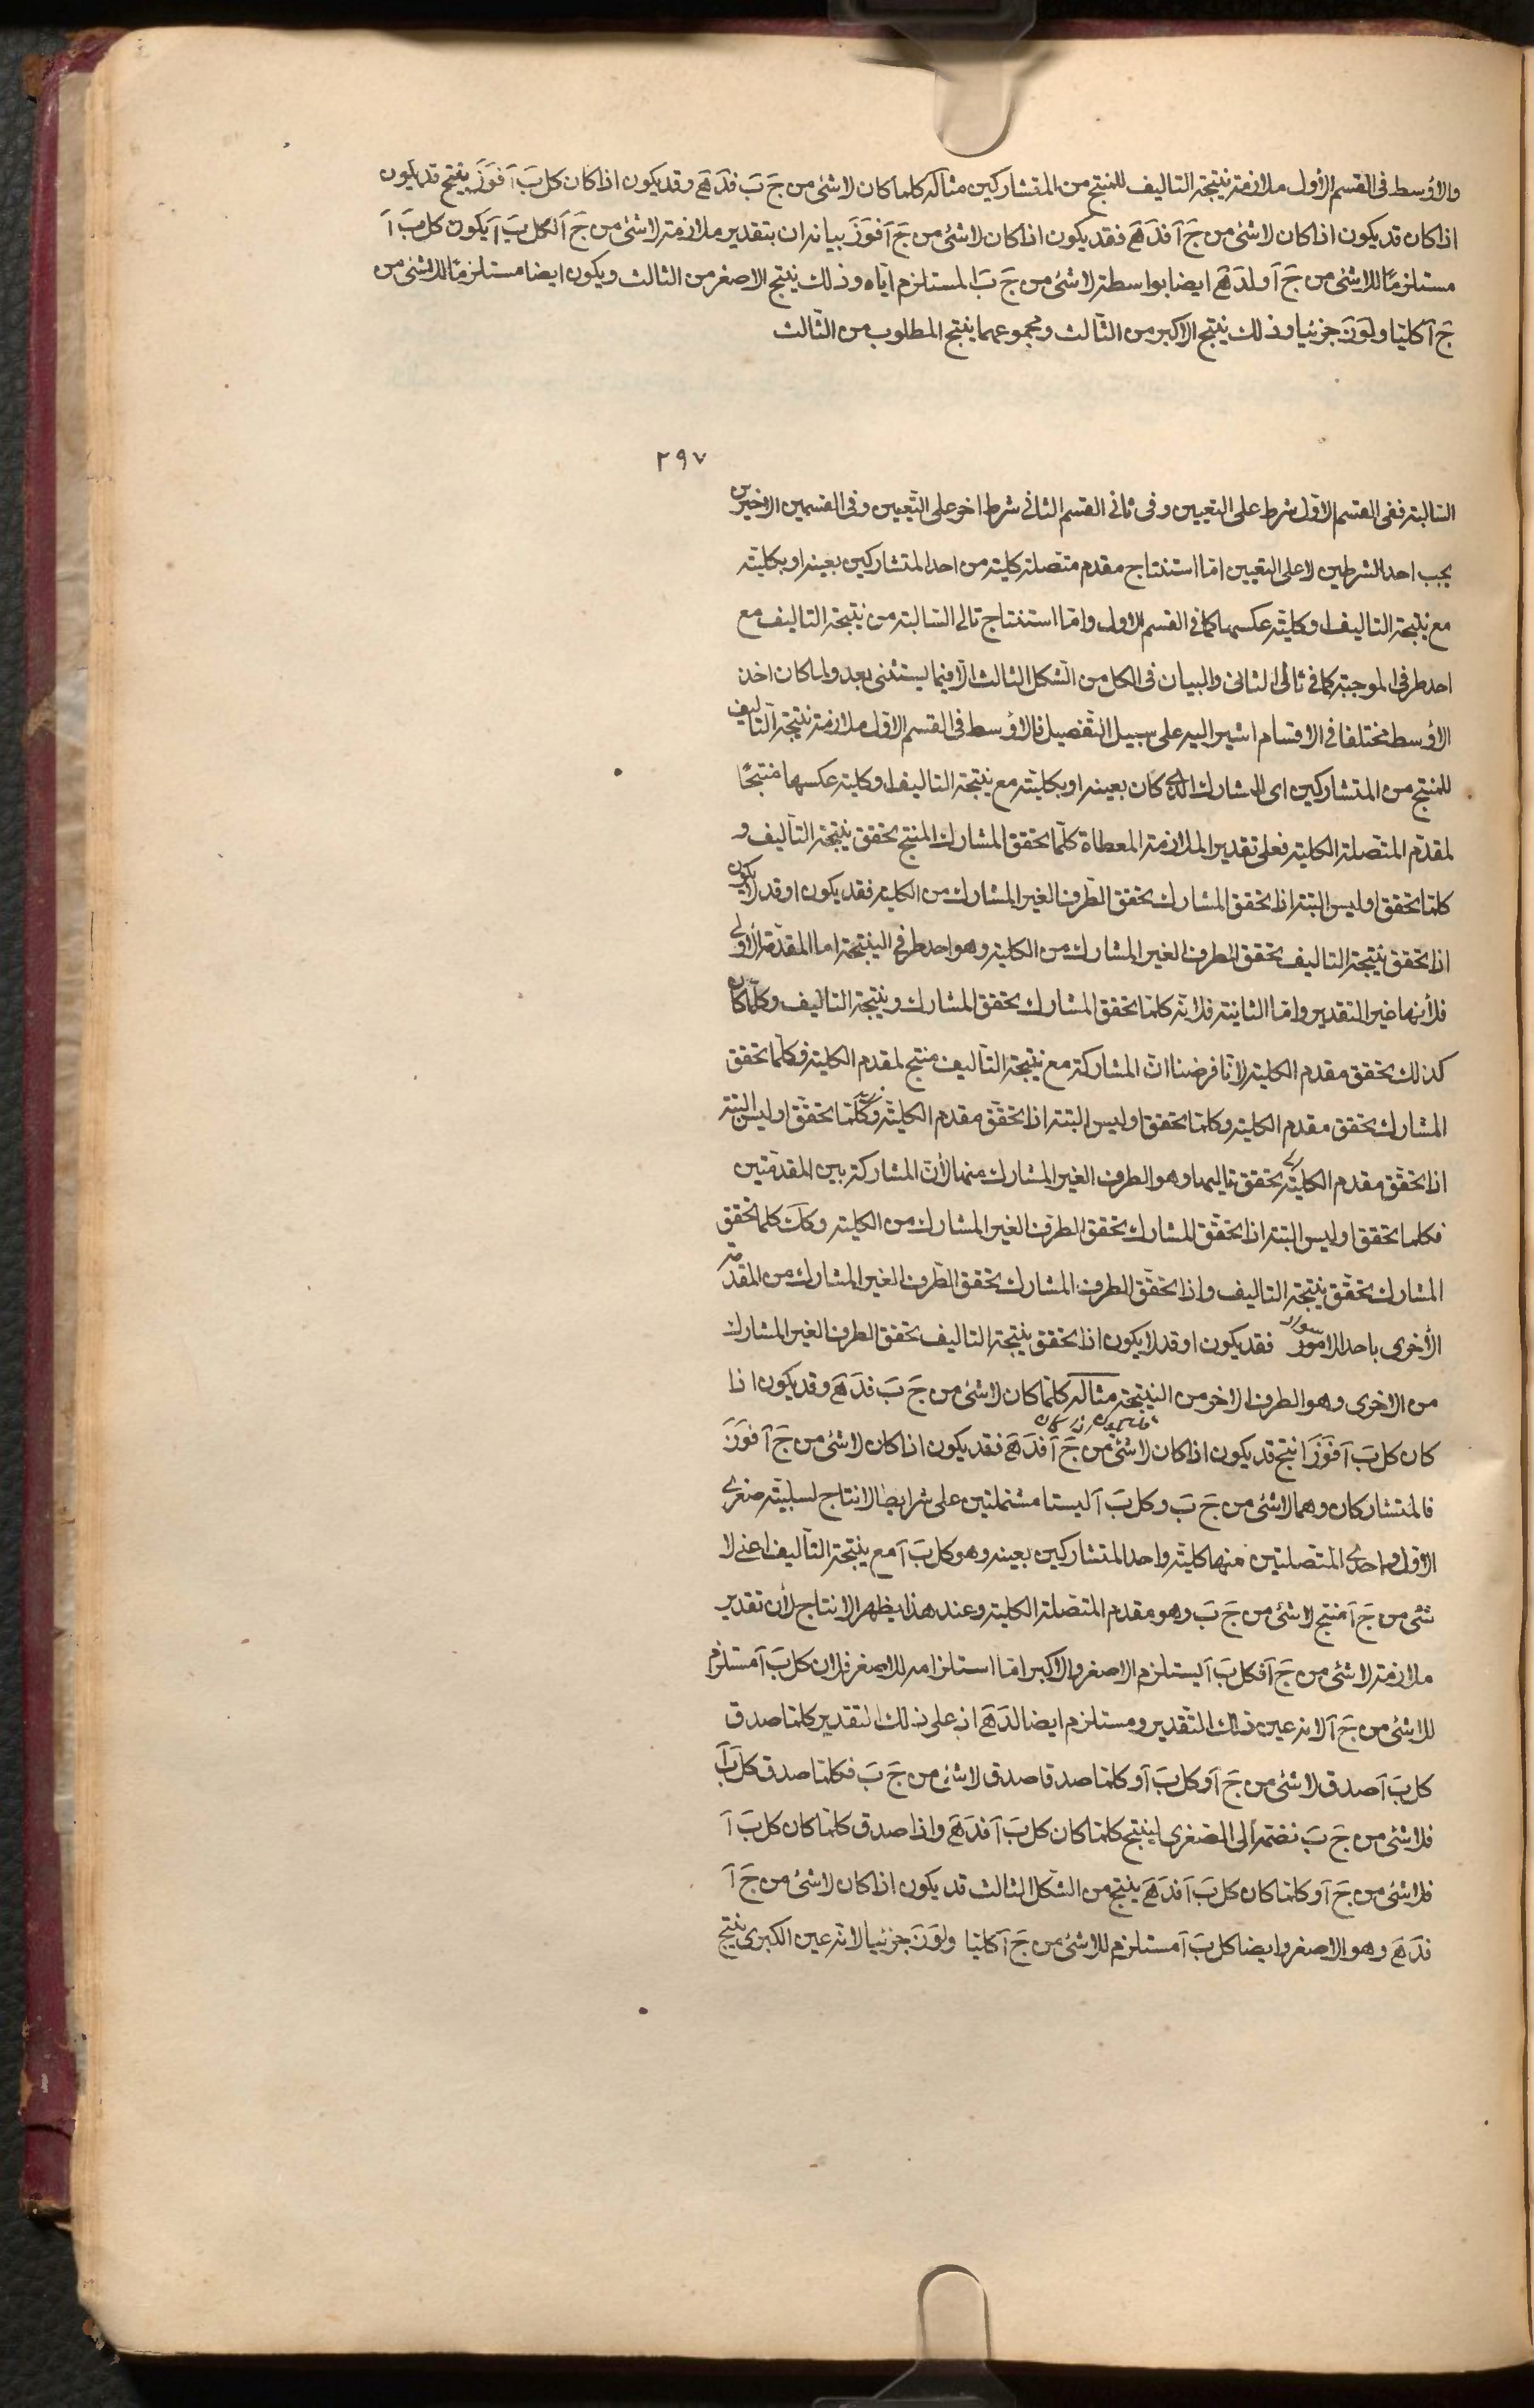 والأوسط فى القسم الأول ملازمة نتيجة التاليف للمنتج من المتشاركين مثاله كلما كان لا شئ من جَ بَ فدَ هَ وقد يكون اذا كان كل بَ آ فوَ زَ ينتج قد يكون
اذا كان قد يكون اذا كان لا شئ من جَ آ فدَ هَ فقد يكون اذا كان لا شئ من جَ آ فوَ زَ بيانه ان بتقدير ملازمة لا شئ من جَ آ لكل بَ آ يكون كل بَ آ
مستلزمًا للاشئ من جَ آ ولدَ هَ ايضا بواسطة لا شئ من جَ بَ المستلزم اياه وذلك ينتج الاصغر من الثالث ويكون ايضا مستلزمًا للاشئ من
جَ آ كليا ولوَ زَ جزئيا وذلك ينتج الاكبر من الثالث ومجموعهما ينتج المطلوب من الثالث
٢٩٧
السالبة ففى القسم الاول شرط على التعيين وفى ثانى القسم الثانى شرط اخر على التعيين وفى القسمين الاخيرين
يجب احد الشرطين لا على التعيين اما استنتاج مقدم متصلة كلية من احد المتشاركين بعينه او بكليته
مع نتيجة التاليف او كلية عكسها كما فى القسم الاول واما استنتاج تالى السالبة من نتيجة التاليف مع
احد طرفى الموجبة كما فى ثانى الثانى والبيان فى الكل من الشكل الثالث الا فيما يستثنى بعد ولما كان اخذ
الأوسط مختلفا فى الاقسام اشير اليه على سبيل التفصيل فالأوسط فى القسم الاول ملازمة نتيجة التاليف
للمنتج من المتشاركين اى المشارك الذى كان بعينه او بكليته مع نتيجة التاليف او كلية عكسها منتجًا
لمقدم المتصلة الكلية فعلى تقدير الملازمة المعطاة كلما تحقق المشارك المنتج تحقق نتيجة التاليف و
كلما تحقق او ليس البتة اذا تحقق المشارك تحقق الطرف الغير المشارك من الكلية فقد يكون او قد لا يكون
اذا تحقق نتيجة التاليف تحقق الطرف الغير المشارك من الكلية وهو احد طرفى النتيجة اما المقدمة الاولى
فلأنها عين التقدير واما الثانية فلانه كلما تحقق المشارك تحقق المشارك ونتيجة التاليف وكلما كان
كذلك تحقق مقدم الكلية لانا فرضنا ان المشاركة مع نتيجة التاليف منتج لمقدم الكلية فكلما تحقق
المشارك تحقق مقدم الكلية وكلما تحقق او ليس البتة اذا تحقق مقدم الكلية وكلما تحقق او ليس البتة
اذا تحقق مقدم الكلية تحقق تاليها وهو الطرف الغير المشارك منها لأن المشاركة بين المقدمتين
فكلما تحقق او ليس البتة اذا تحقق المشارك تحقق الطرف الغير المشارك من الكلية وكك كلما تحقق
المشارك تحقق نتيجة التاليف واذا تحقق الطرف المشارك تحقق الطرف الغير المشارك من المقدمة
الأخرى باحد الامور فقد يكون او قد لا يكون اذا تحقق نتيجة التاليف تحقق الطرف الغير المشارك
من الاخرى وهو الطرف الاخر من النتيجة مثاله كلما كان لا شئ من جَ بَ فدَ هَ وقد يكون اذا
كان كل بَ آ فوَ زَ انتج قد يكون اذا كان لا شئ من جَ آ فدَ هَ فقد يكون اذا كان لا شئ من جَ آ فوَ زَ
فالمتشاركان وهما لا شئ من جَ بَ وكل بَ آ ليستا مشتملتين على شرايط الانتاج لسلبية صغرى
الاول واحدى المتصلتين منها كلية واحد المتشاركين بعينه وهو كل بَ آ مع نتيجة التاليف اعنى لا
شئ من جَ آ منتج لا شئ من جَ بَ وهو مقدم المتصلة الكلية وعند هذا يظهر الانتاج لأن تقدير
ملازمة لا شئ من جَ آ فكل بَ آ يستلزم الاصغر والاكبر اما استلزامه للاصغر فلان كل بَ آ مستلزم
للاشئ من جَ آ لانه عين ذلك التقدير ومستلزم ايضا لدَ هَ اذ على ذلك التقدير كلما صدق
كل بَ آ صدق لا شئ من جَ آ وكل بَ آ وكلما صدقا صدق لا شئ من جَ بَ فكلما صدق كل بَ آ
فلا شئ من جَ بَ نضمه الى الصغرى لينتج كلما كان كل بَ آ فدَ هَ واذا صدق كلما كان كل بَ آ
فلا شئ من جَ آ وكلما كان كل بَ آ فدَ هَ ينتج من الشكل الثالث قد يكون اذا كان لا شئ من جَ آ
فدَ هَ وهو الاصغر وايضا كل بَ آ مستلزم للاشئ من جَ آ كليا ولوَ زَ جزئيا لانه عين الكبرى ينتج